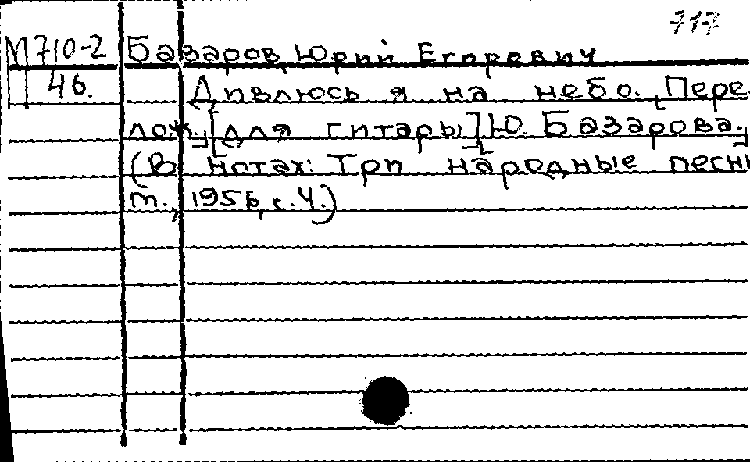 717
М710-2 Базаров, Юрий Егорович
46. Дивлюсь я на небо. [Пере-
лож.] [для гитары] Ю. Базарова.
(В нотах: Три народные песни
М., 1956, с. 4.)